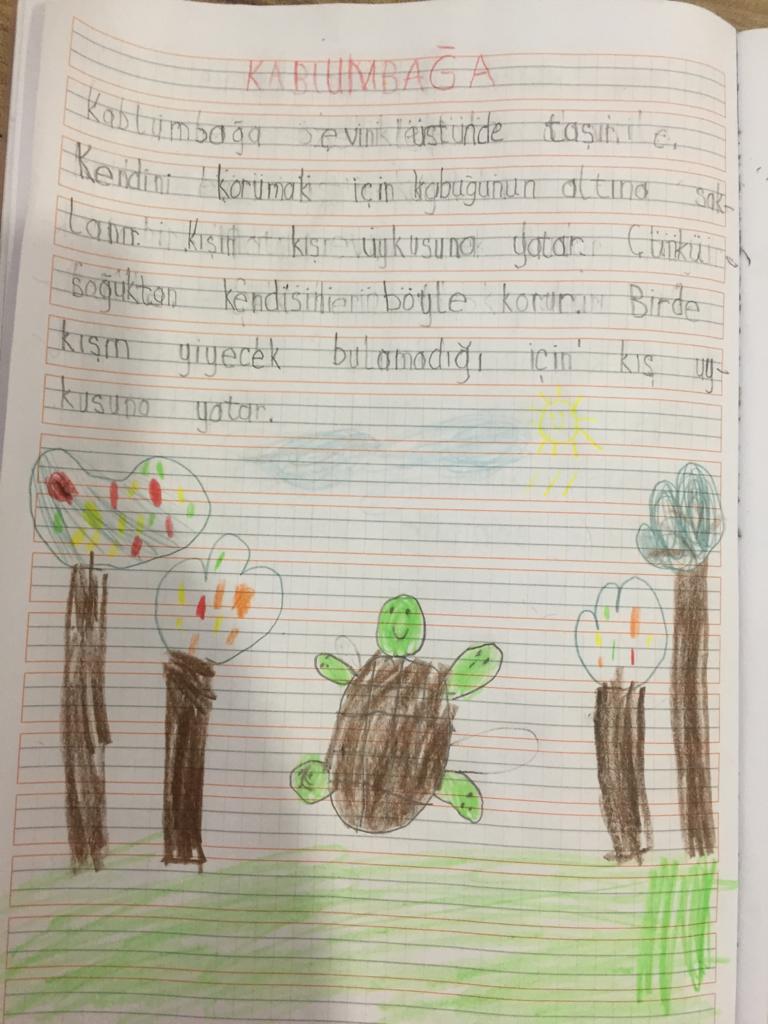 KABLUMBAĞA
Kablumbağa evini üstünde taşır.
Kendini korumak için kabuğunun altına sak-
lanır. Kışın kış uykusuna yatar. Çünkü
soğuktan kendisini böyle korur. Birde
kışın yiyecek bulamadığı için kış uy-
kusuna yatar.